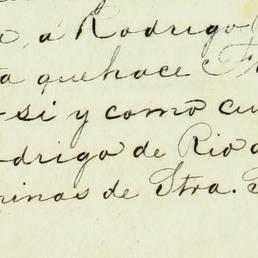 , a Rodrigo
ta que hace
si y como cu
odrigo de Rio
rinas de Stra.